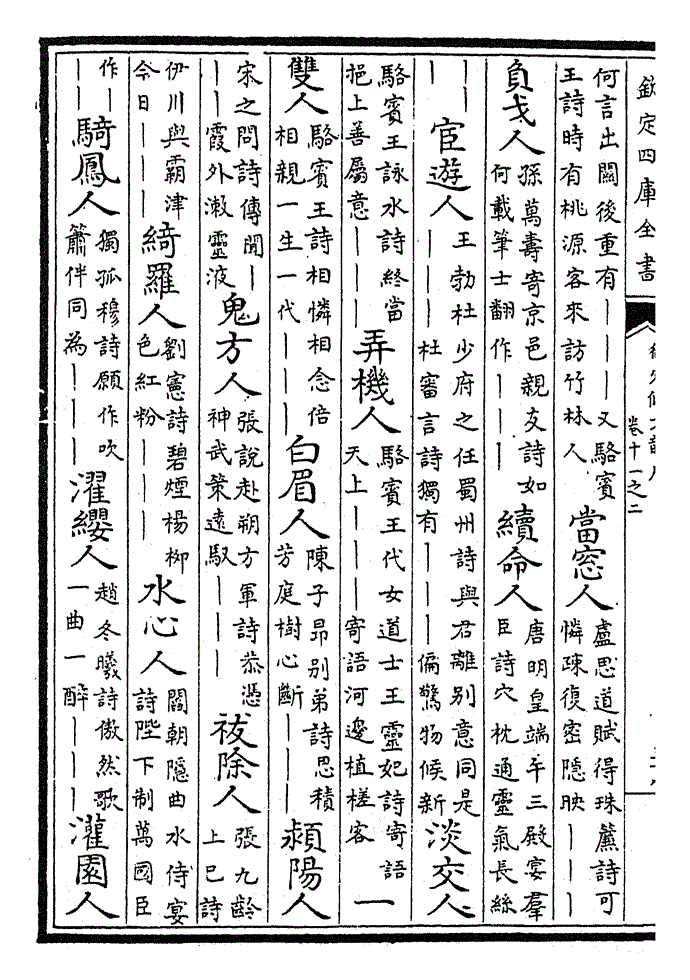 欽定四庫全書
卷十一之二
何言出關後重有｜｜｜又駱賓王詩時有桃源客來訪竹林人 當窓人 盧思道賦得珠簾詩可憐疎復密隱映｜｜｜
負戈人 孫萬壽寄京邑親友詩如何載筆士翻作｜｜｜ 續命人 唐明皇端午三殿宴羣臣詩穴枕通靈氣長絲
｜｜｜ 宦遊人 王勃杜少府之任蜀州詩與君離別意同是｜｜｜杜審言詩獨有｜｜｜偏驚物候新 淡交人
駱賓王詠水詩終當挹上善屬意｜｜｜ 弄機人 駱賓王代女道士王靈妃詩寄語天上｜｜｜寄語河邊植槎客 一
雙人 駱賓王詩相憐相念倍相親一生一代｜｜｜ 白眉人 陳子昂別弟詩思積芳庭樹心斷｜｜｜ 潁陽人
宋之問詩傳聞｜｜｜霞外漱靈液 鬼方人 張說赴朔方軍詩恭憑神武策遠馭｜｜｜ 祓除人 張九齡上巳詩
伊川與霸津今日｜｜｜ 綺羅人 劉憲詩碧煙楊柳色紅粉｜｜｜ 水心人 閻朝隱曲水侍宴詩陛下制萬國臣
作｜｜｜ 騎鳳人 獨孤穆詩願作吹簫伴同為｜｜｜ 濯纓人 趙冬曦詩傲然歌一曲一醉｜｜｜ 灌園人